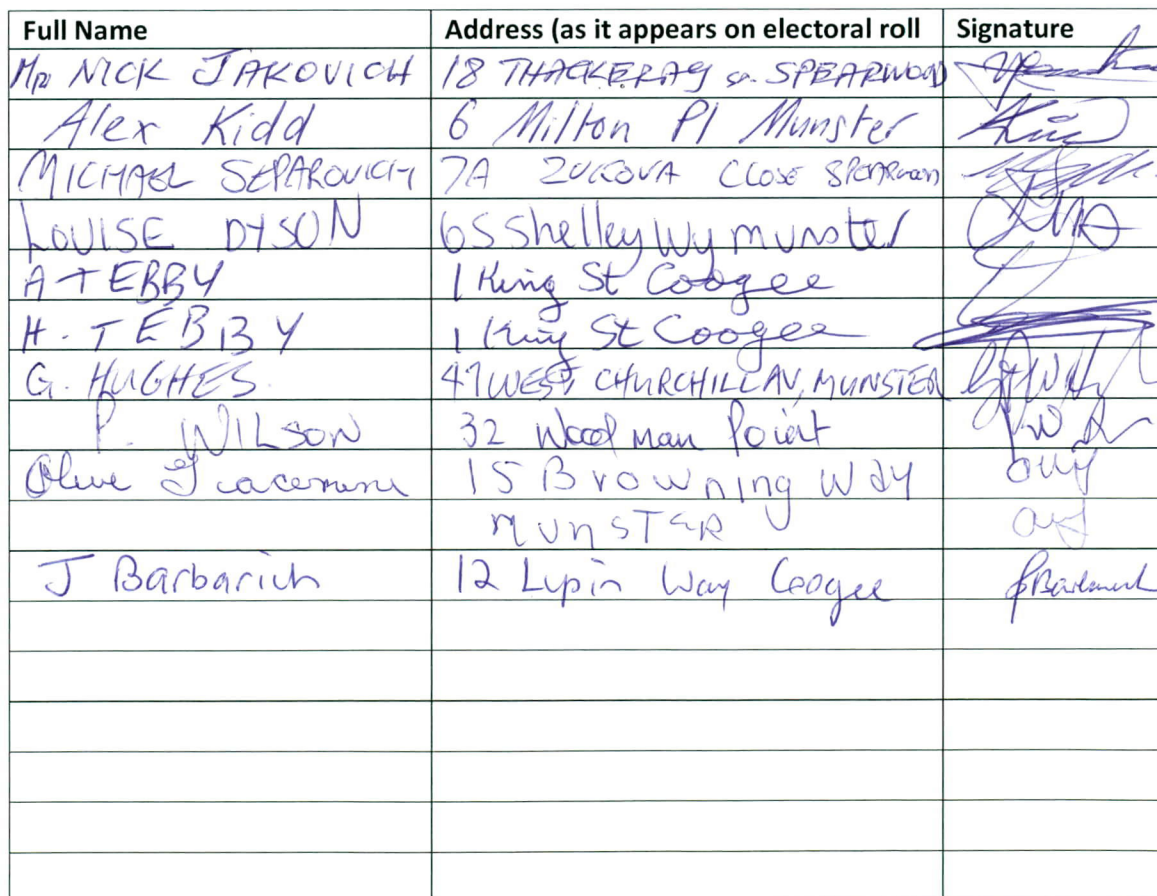 Full Name Address (as it appears on electoral roll Signature
Mr NICK JAKOVICH 18 THACKERAY SPEARWOOD
Alex Kidd 6 Milton Pl Munster
MICHAEL SEPAROVICH 7A ZUKOVA CLOSE SPEARWOOD
LOUISE DYSON 65 Shelley Wy munster
A TEBBY 1 King St Coogee
H. TEBBY 1 King St Coogee
G. HUGHES. 47 WEST CHURCHILL AV, MUNSTER
P. WILSON 32 Woodman Point
Olive 15 Browning Way
MUNSTER
J Barbarich 12 Lupin Way Coogee